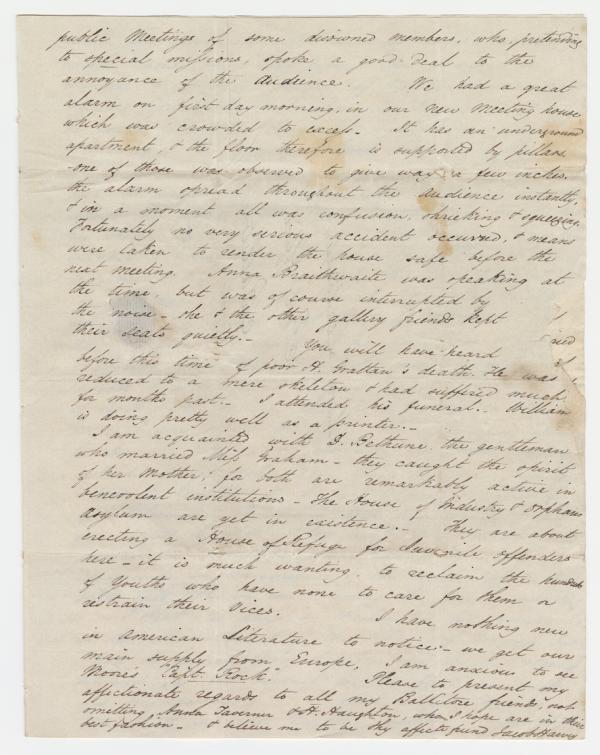 public Meetings of some disowned members, who, pretending
to special missions, spoke a good deal to the
annoyance of the Audience. We had a great
alarm on first day morning, in our new Meeting house
which was crowded to excess. It has an underground
apartment, & the floor therefore is supported by pillars
-one of these was observed to give way a few inches.
the alarm spread throughout the audience instantly,
& in a moment all was confusion, shrieking & squeezing.
Fortunately no very serious accident occurred, & means
were taken to render the house safe before the
next meeting. Anna Braithwaite was speaking at
the time, but was of course interrupted by
the noise - she & the other gallery friends kept
their seats quietly.- You will have heard
before this time of poor H. Grattan's death. He was
reduced to a mere skeleton & had suffered much
for months past.- I attended his funeral. William
is doing pretty well as a printer.-
I am acquainted with D. Bethune the gentleman
who married Miss Graham - they caught the spirit
of her Mother, for both are remarkably active in
benevolent institutions - The House of Industry & Orphans
Asylum are yet in existence.- They are about
erecting a House of Refuge for Juvenile offenders
here - it is much wanting to reclaim the hundreds
of Youths who have none to care for them or
restrain their vices. I have nothing new
in American Literature to notice - we get our
main supply from Europe. I am anxious to see
Moore's "Capt. Rock." Please to present my
affectionate regards to all my Ballitore friends, not
omitting Anna Taverner & H. Haughton, who I hope are in their
best fashion - & believe me to be thy affecte fund Jacob Harvey